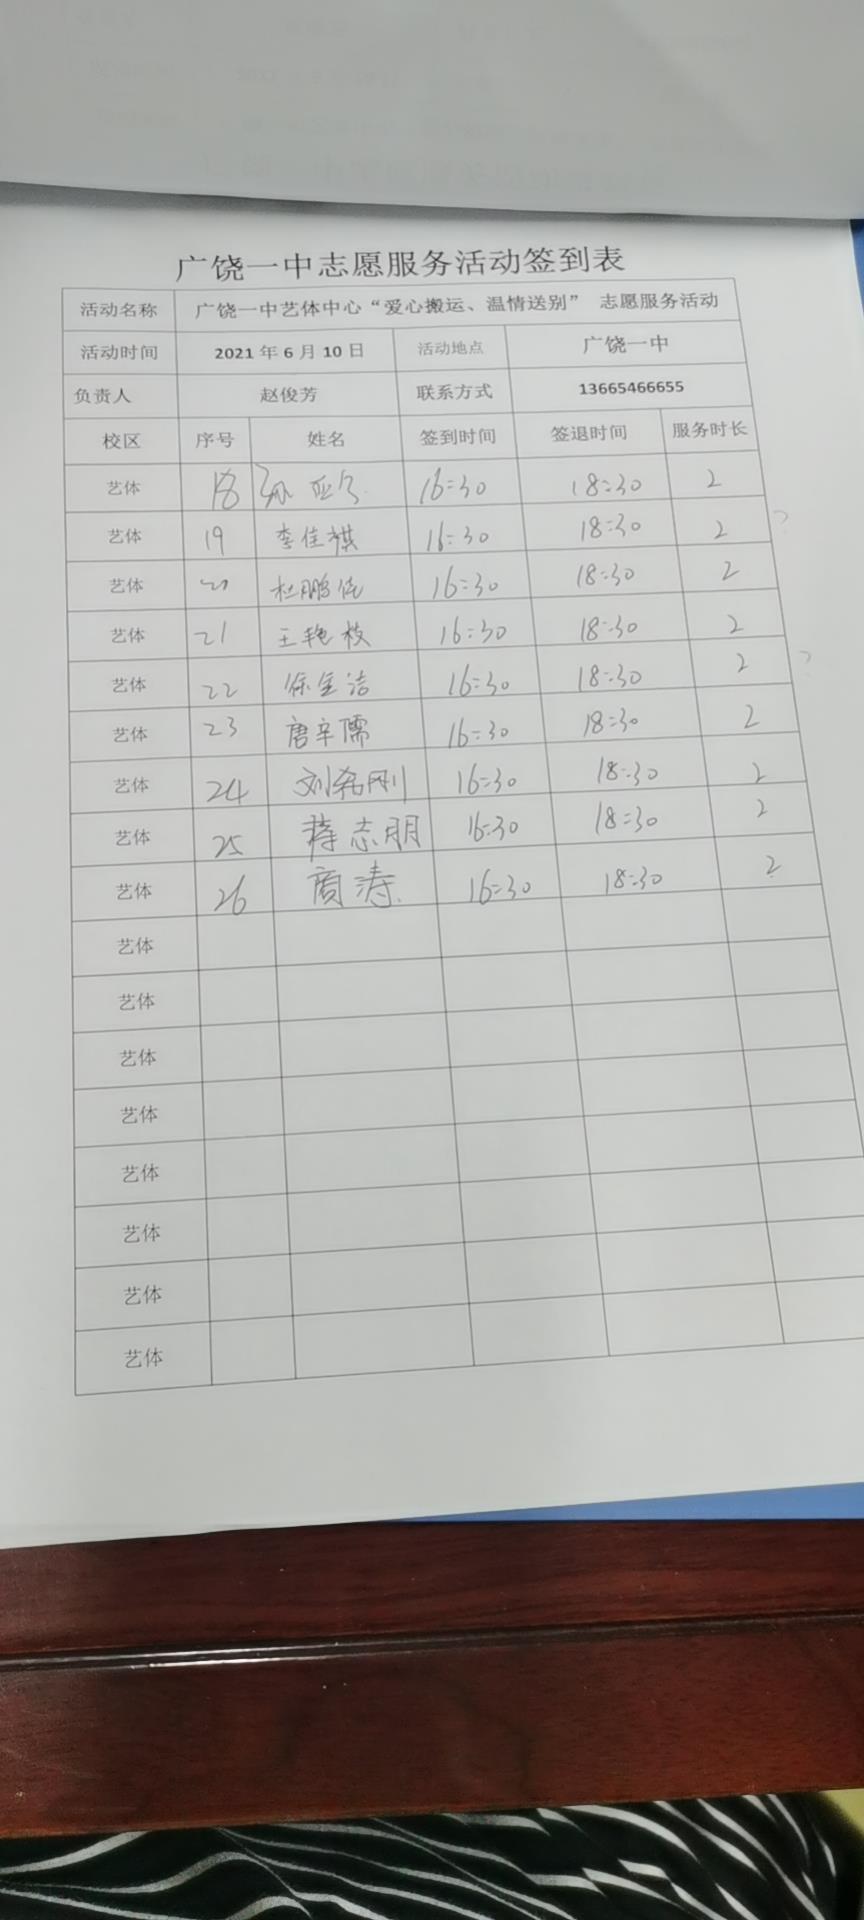 广饶一中志愿服务活动签到表
活动名称 广饶一中艺体中心“爱心搬运、温情送别” 志愿服务活动
活动时间 2021年6月10日 活动地点 广饶一中
负责人 赵俊芳 联系方式 13665466655
校区 序号 姓名 签到时间 签退时间 服务时长
艺体 18 孙 16:30 18:30 2
艺体 19 李佳祺 16:30 18:30 2 ?
艺体 20 杜鹏 16:30 18:30 2
艺体 21 王艳枝 16:30 18:30 2
艺体 22 徐金洁 16:30 18:30 2 ?
艺体 23 唐辛儒 16:30 18:30 2
艺体 24 刘希刚 16:30 18:30 2
艺体 25 蒋志朋 16:30 18:30 2
艺体 26 商涛 16:30 18:30 2
艺体
艺体
艺体
艺体
艺体
艺体
艺体
艺体